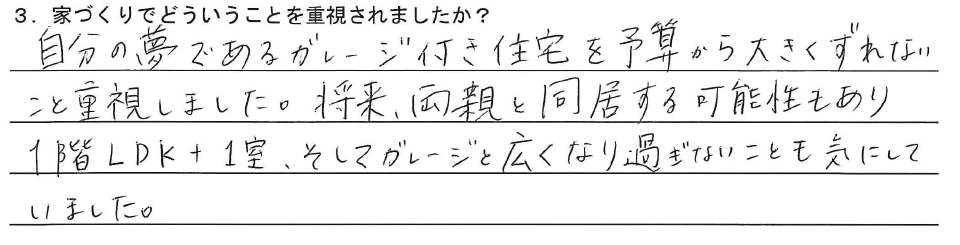 3．家づくりでどういうことを重視されましたか？
自分の夢であるガレージ付き住宅を予算から大きくずれない
こと重視しました。将来、両親と同居する可能性もあり
1階LDK+1室、そしてガレージと広くなり過ぎないことも気にして
いました。